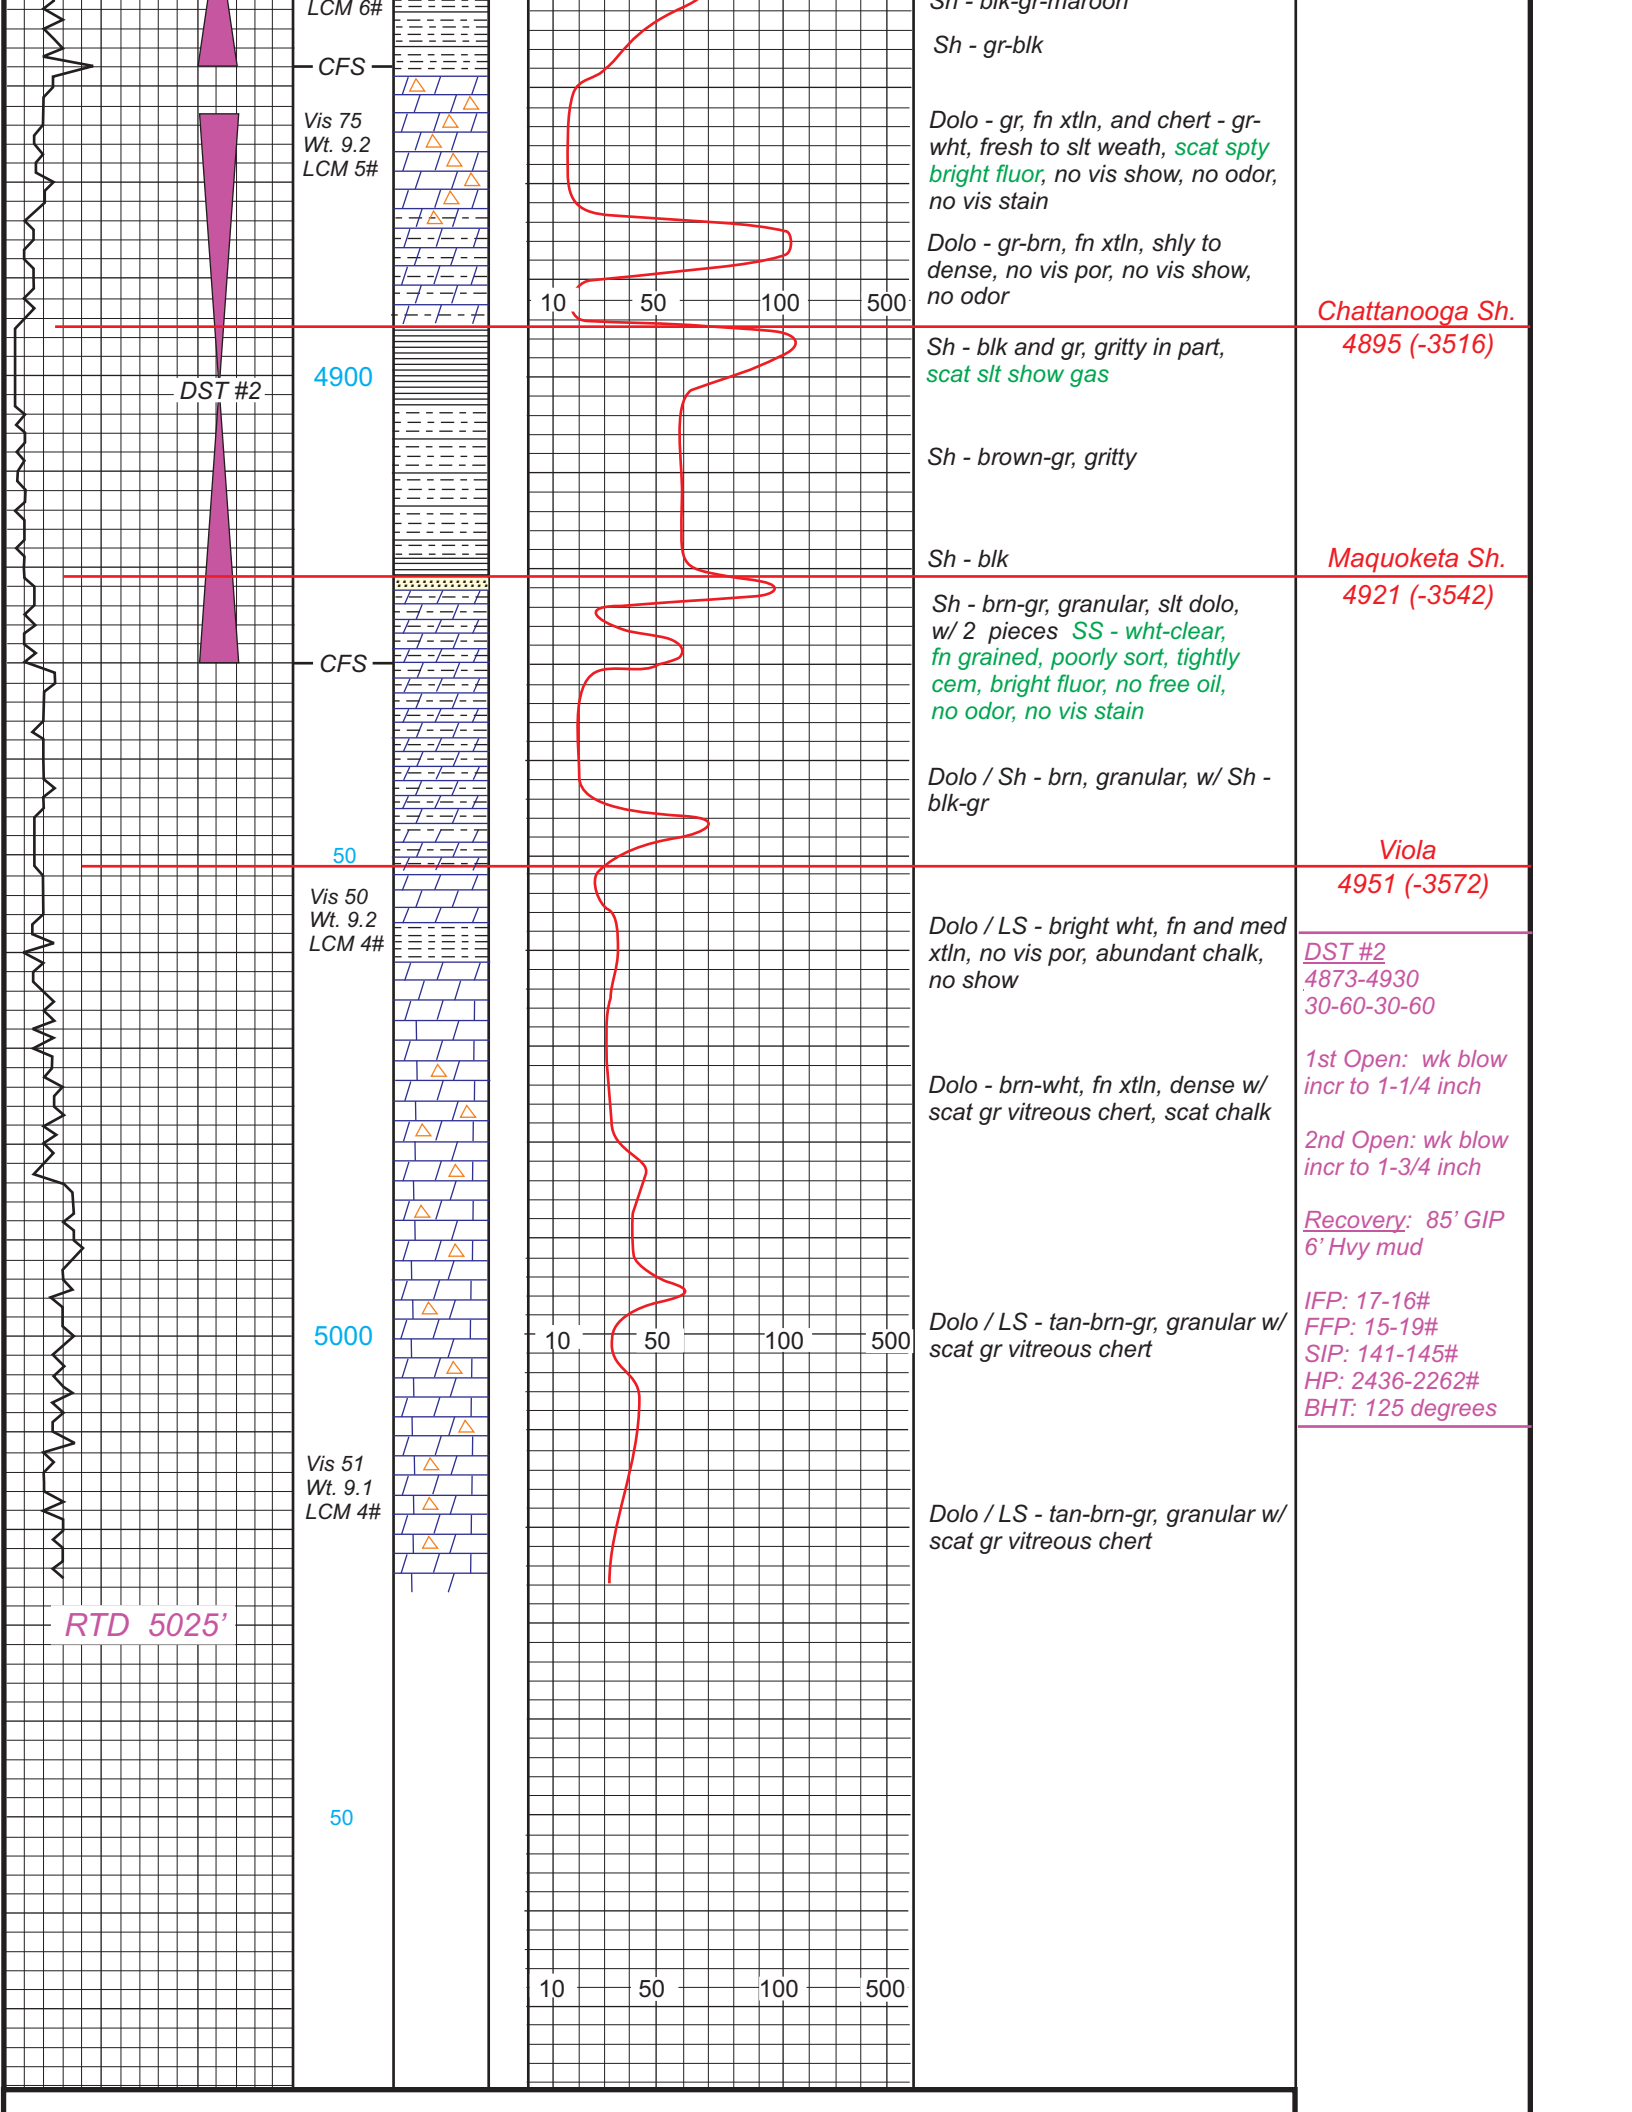 LCM 6#
CFS
Vis 75
Wt. 9.2
LCM 5#
DST #2
4900
CFS
50
Vis 50
Wt. 9.2
LCM 4#
5000
Vis 51
Wt. 9.1
LCM 4#
RTD 5025’
50
10 50 100 500
10 50 100 500
10 50 100 500
Sh - blk-gr-maroon
Sh - gr-blk
Dolo - gr, fn xtln, and chert - gr-
wht, fresh to slt weath, scat spty
bright fluor, no vis show, no odor,
no vis stain
Dolo - gr-brn, fn xtln, shly to
dense, no vis por, no vis show,
no odor
Sh - blk and gr, gritty in part,
scat slt show gas
Sh - brown-gr, gritty
Sh - blk
Sh - brn-gr, granular, slt dolo,
w/ 2 pieces SS - wht-clear,
fn grained, poorly sort, tightly
cem, bright fluor, no free oil,
no odor, no vis stain
Dolo / Sh - brn, granular, w/ Sh -
blk-gr
Dolo / LS - bright wht, fn and med
xtln, no vis por, abundant chalk,
no show
Dolo - brn-wht, fn xtln, dense w/
scat gr vitreous chert, scat chalk
Dolo / LS - tan-brn-gr, granular w/
scat gr vitreous chert
Dolo / LS - tan-brn-gr, granular w/
scat gr vitreous chert
Chattanooga Sh.
4895 (-3516)
Maquoketa Sh.
4921 (-3542)
Viola
4951 (-3572)
DST #2
4873-4930
30-60-30-60
1st Open: wk blow
incr to 1-1/4 inch
2nd Open: wk blow
incr to 1-3/4 inch
Recovery: 85’ GIP
6’ Hvy mud
IFP: 17-16#
FFP: 15-19#
SIP: 141-145#
HP: 2436-2262#
BHT: 125 degrees